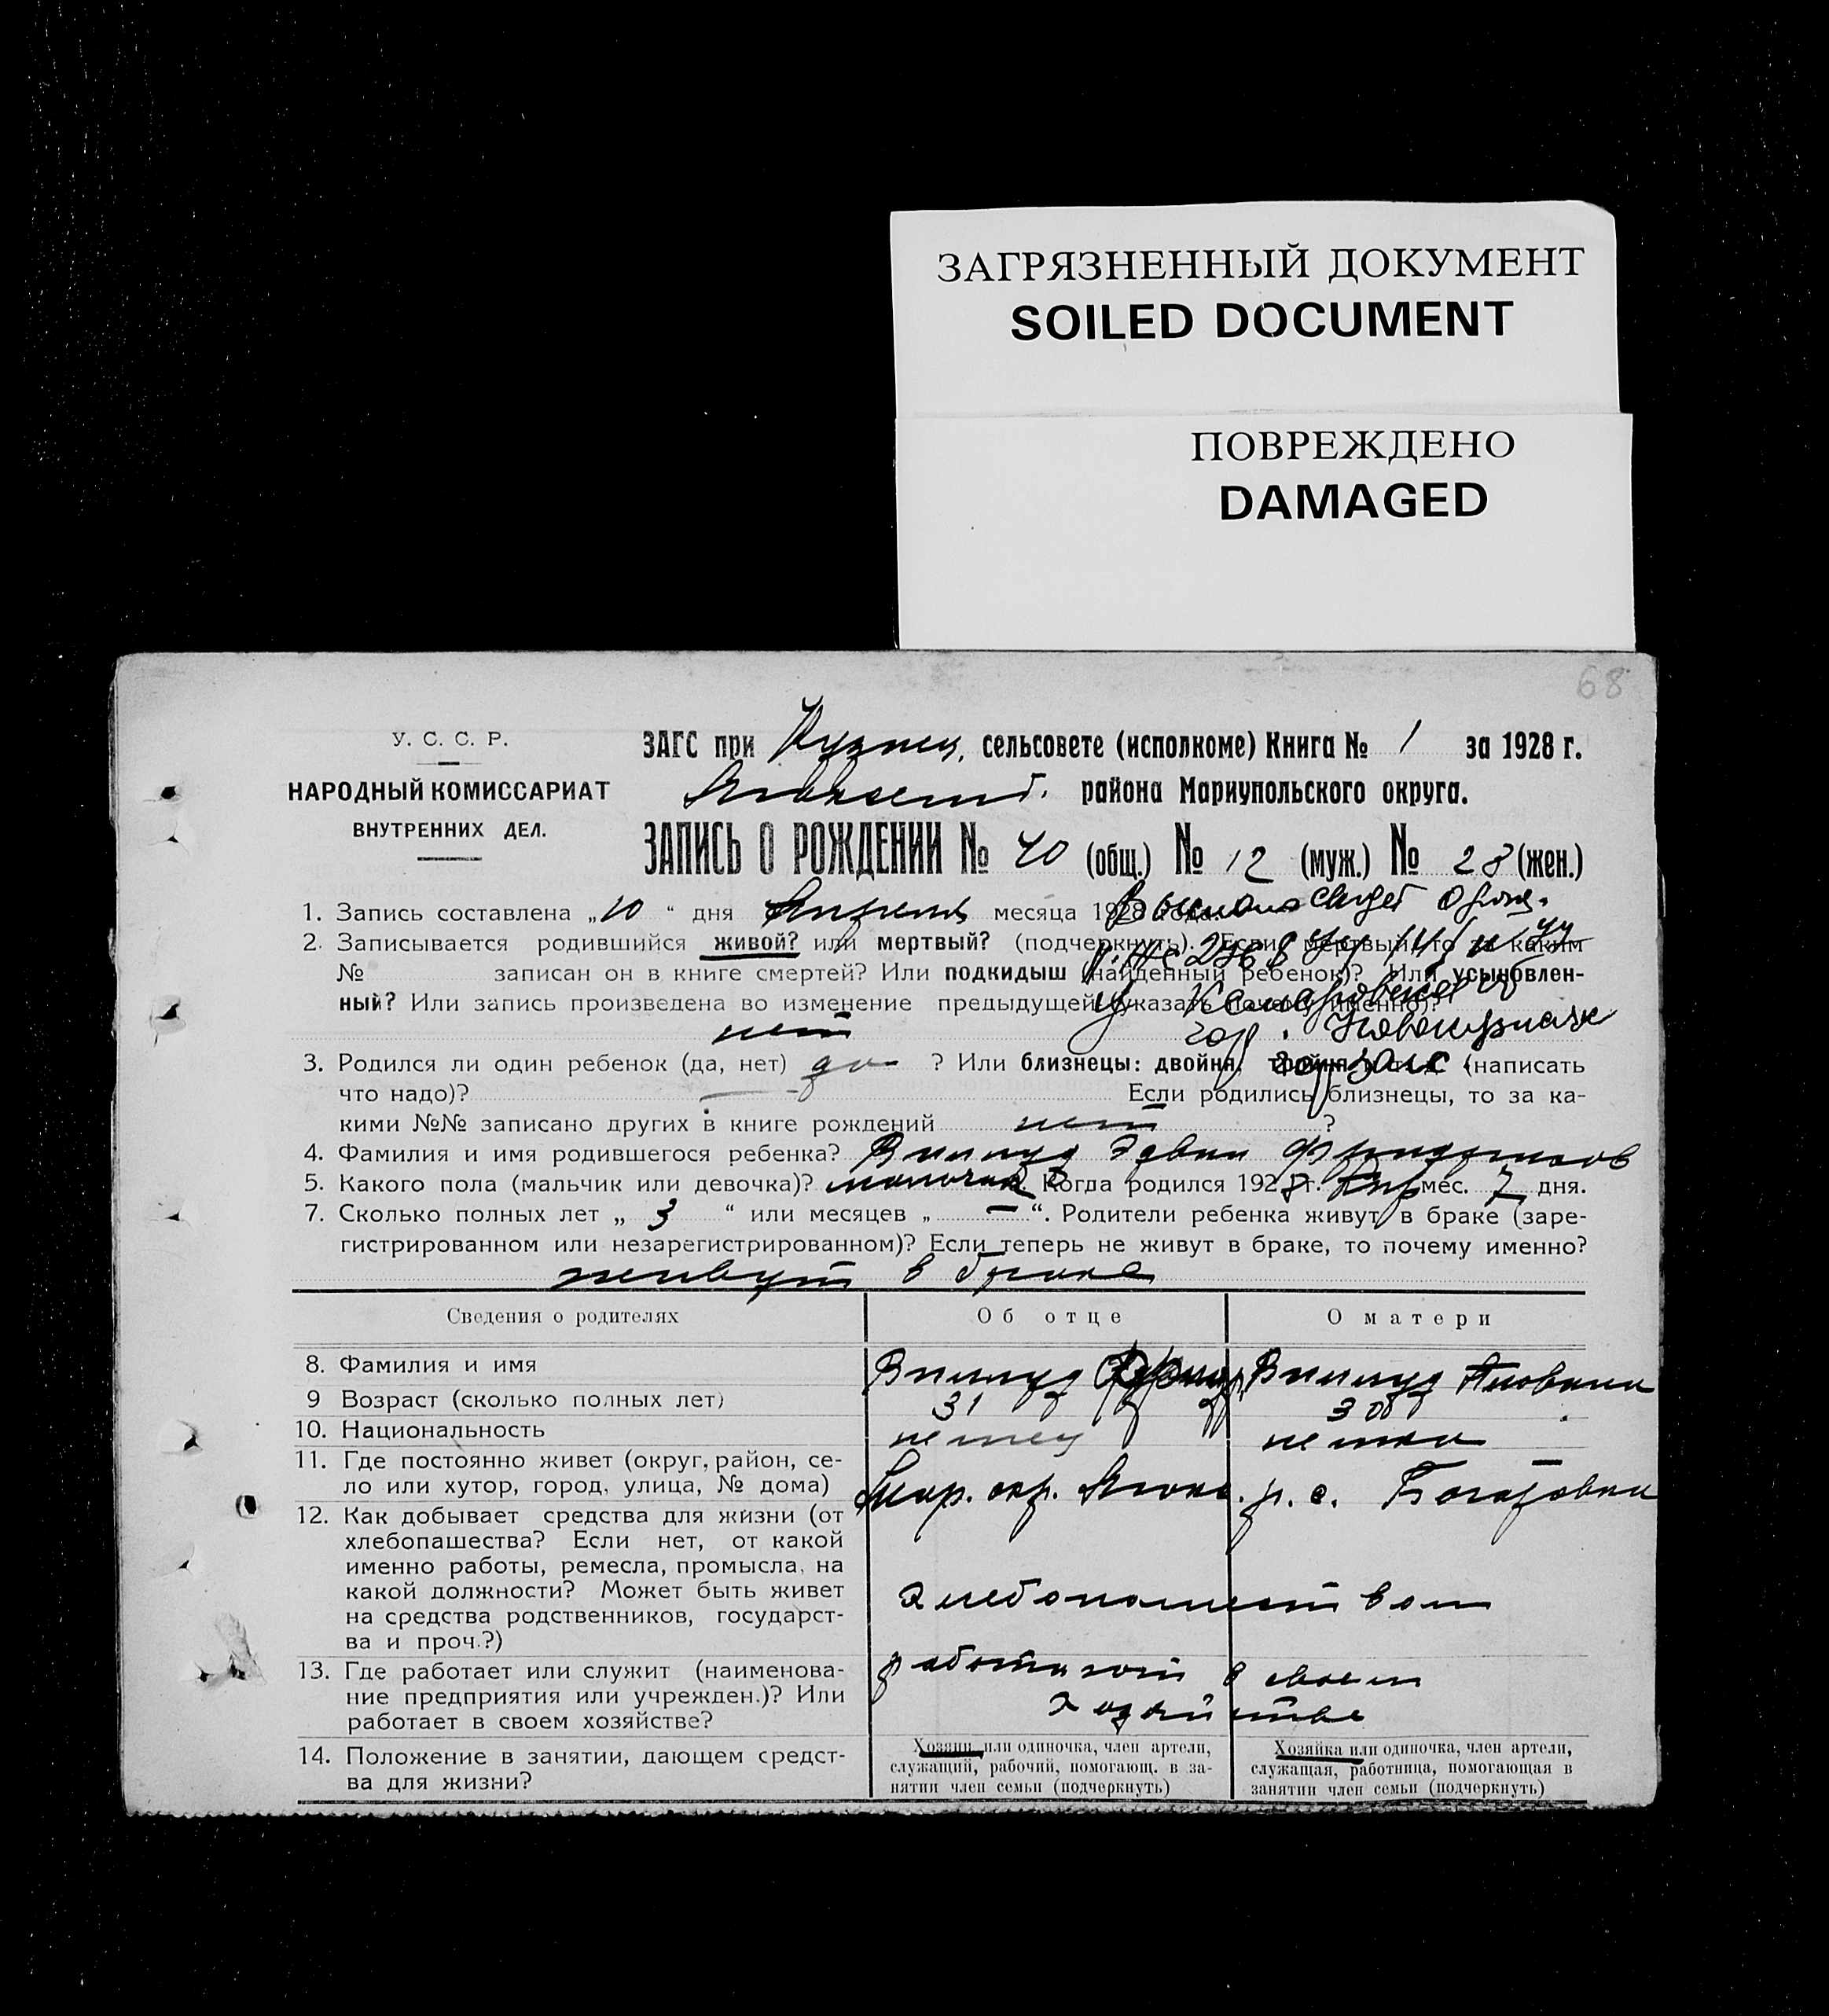 ЗАГРЯЗНЕННЫЙ ДОКУМЕНТ
SOILED DOCUMENT
ПОВРЕЖДЕНО
DAMAGED
68
У. С. С. Р.
НАРОДНЫЙ КОМИССАРИАТ
ВНУТРЕННИХ ДЕЛ.
ЗАГС при сельсовете (исполкоме) Книга № 1 за 1928 г.
района Мариупольского округа.
ЗАПИСЬ О РОЖДЕНИИ № 40 (общ.) № 12 (муж.) № 28 (жен.)
1. Запись составлена „10“ дня Апреля месяца 1928 года.
2. Записывается родившийся живой? или мертвый? (подчеркнуть). Если мертвый, то за каким
№ записан он в книге смертей? Или подкидыш (найденный ребенок)? Или усыновлен-
ный? Или запись произведена во изменение предыдущей (указать почему именно)?
нет
3. Родился ли один ребенок (да, нет) да ? Или близнецы: двойня, тройня и т. д. (написать
что надо)? — Если родились близнецы, то за ка-
кими №№ записано других в книге рождений нет ?
4. Фамилия и имя родившегося ребенка? Эдвин
5. Какого пола (мальчик или девочка)? мальчик Когда родился 1928 г. мес. 7 дня.
7. Сколько полных лет „ 3 “ или месяцев „ — “. Родители ребенка живут в браке (заре-
гистрированном или незарегистрированном)? Если теперь не живут в браке, то почему именно?
живут в браке
Сведения о родителях Об отце О матери
8. Фамилия и имя
9 Возраст (сколько полных лет) 31 30
10. Национальность немец немка
11. Где постоянно живет (округ, район, се-
ло или хутор, город, улица, № дома) Мар. окр. р. с.
12. Как добывает средства для жизни (от
хлебопашества? Если нет, от какой
именно работы, ремесла, промысла, на
какой должности? Может быть живет
на средства родственников, государст-
ва и проч.?)
хлебопашеством
13. Где работает или служит (наименова-
ние предприятия или учрежден.)? Или
работает в своем хозяйстве?
работают в своем
хозяйстве
14. Положение в занятии, дающем средст-
ва для жизни?
Хозяин или одиночка, член артели,
служащий, рабочий, помогающ. в за-
нятии член семьи (подчеркнуть)
Хозяйка или одиночка, член артели,
служащая, работница, помогающая в
занятии член семьи (подчеркнуть)